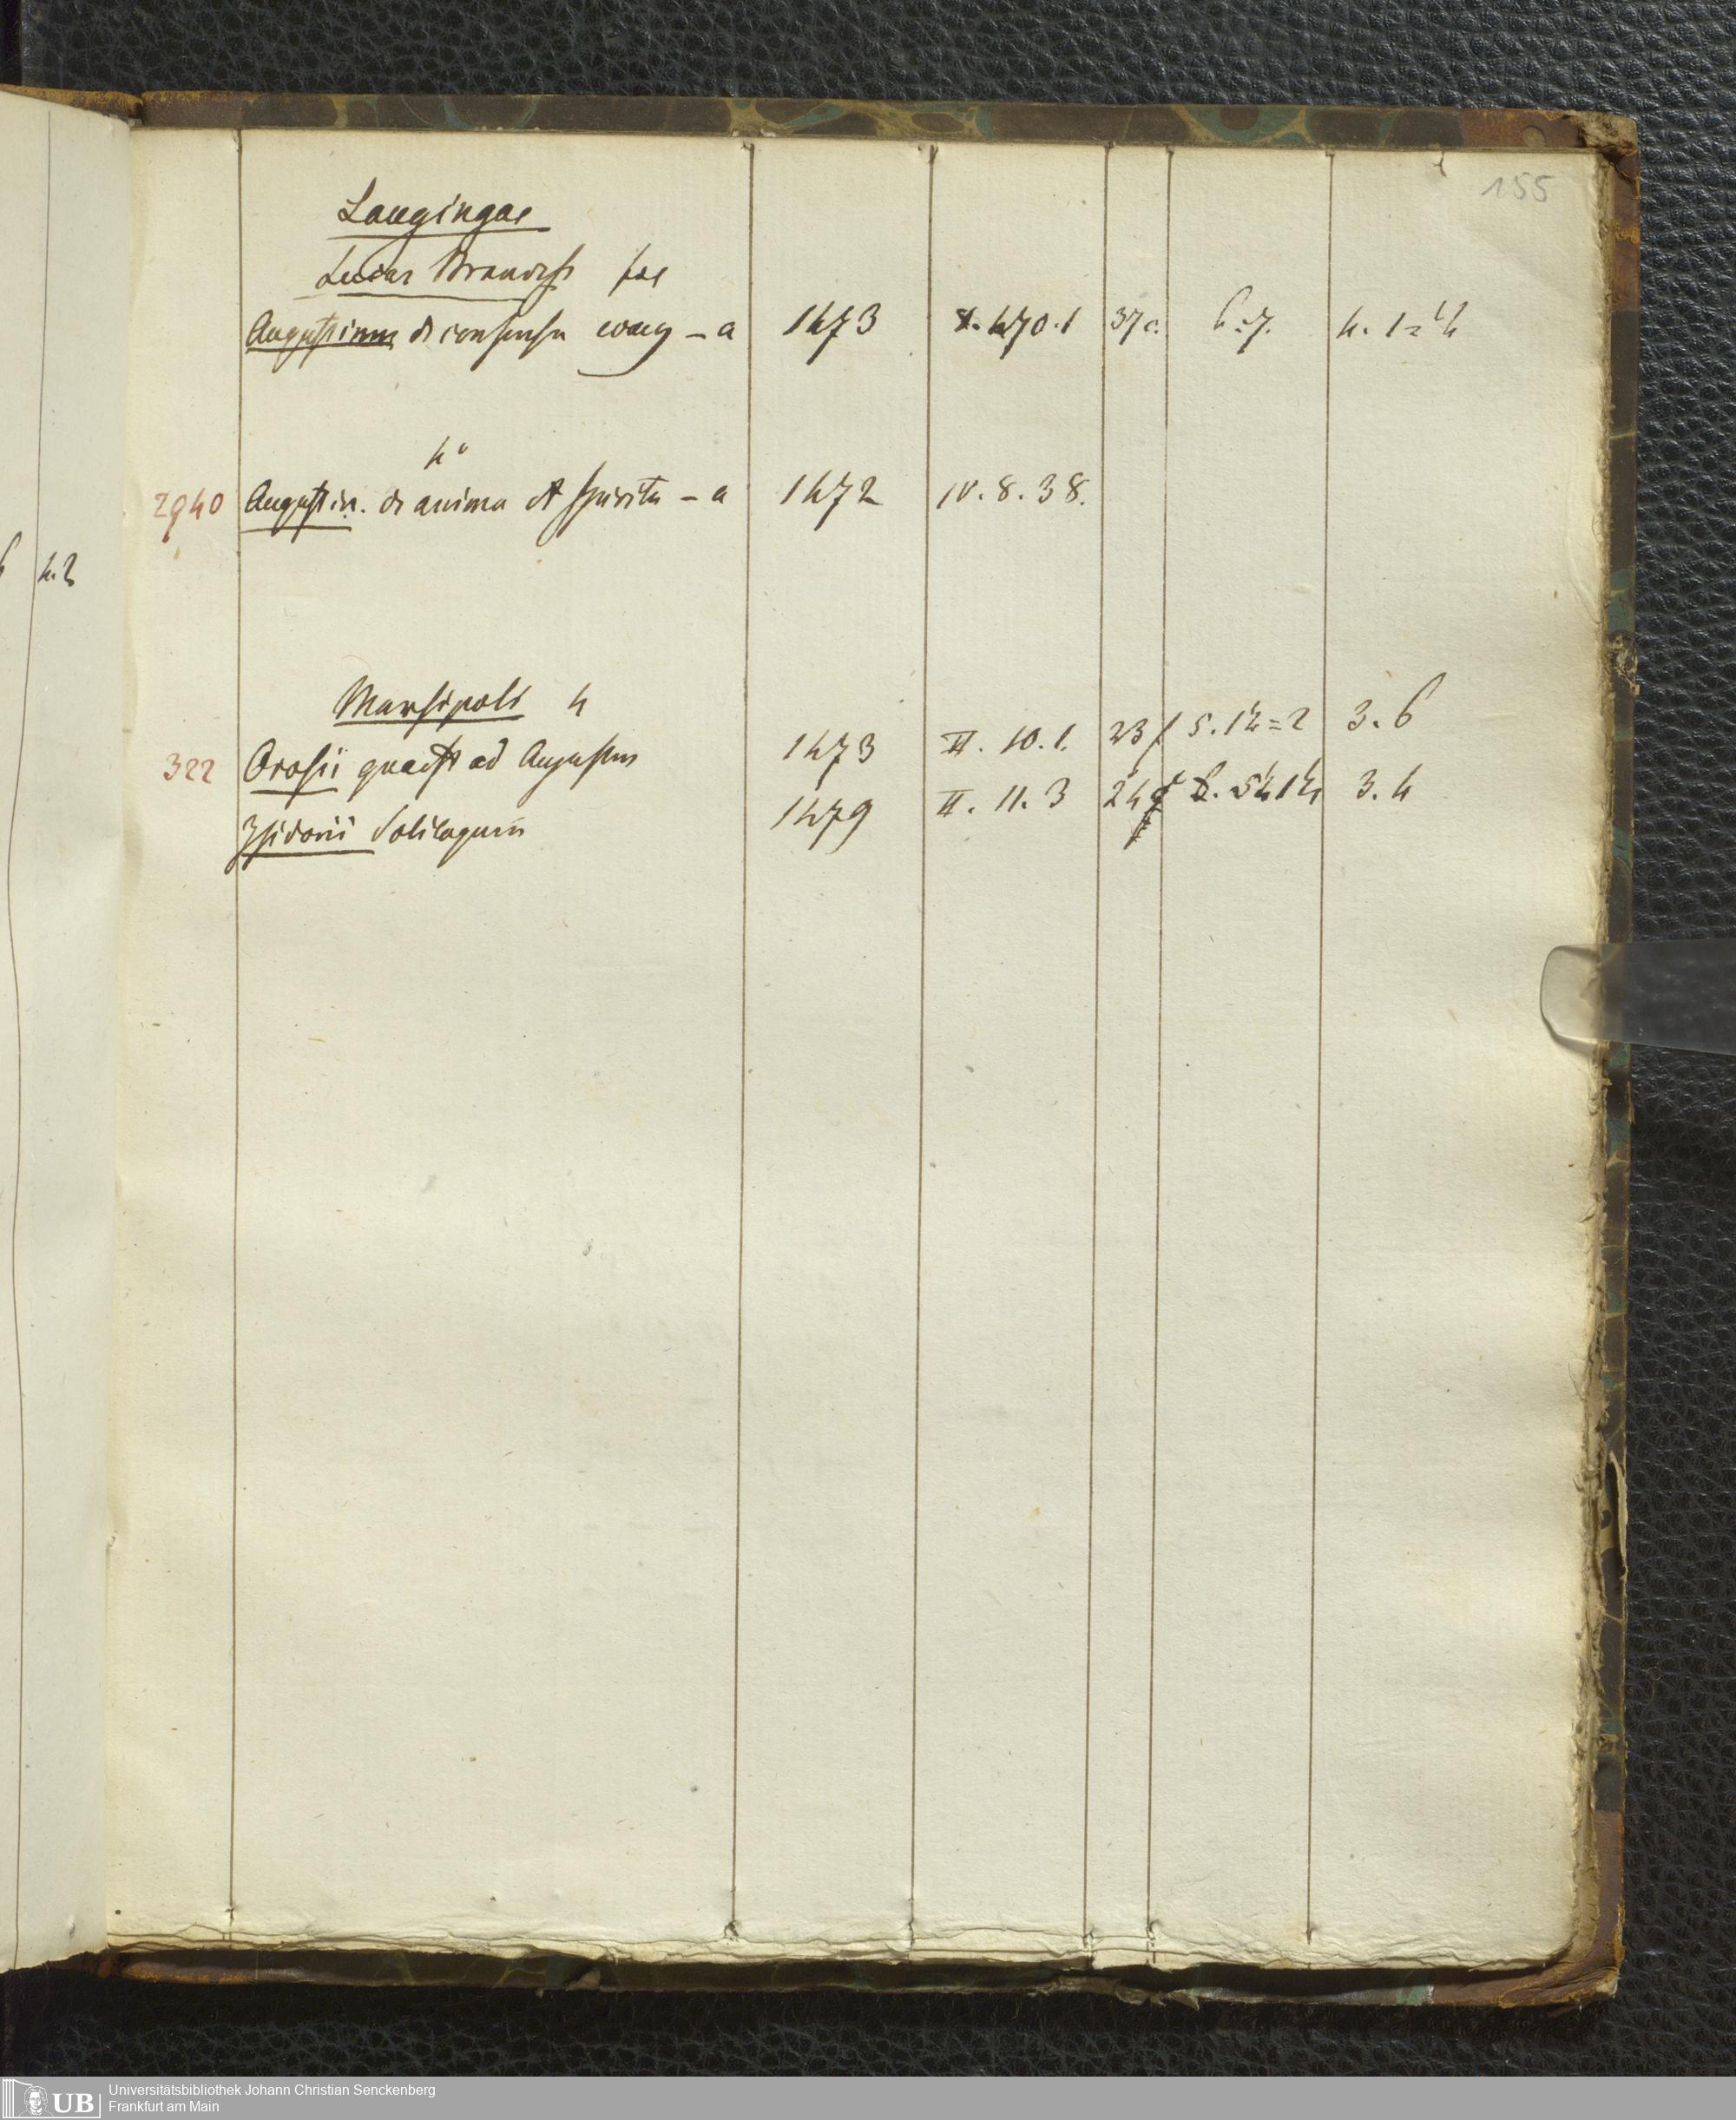 155
Laugingae
Lucas Brandis fol
Augustinus de consensu evang – a 1473 470.1 37 c. 6=7. 4. 1=
4°
2940 Augustin. de anima et spiritu – a 1472 IV. 8. 38.
4.2
Mersipoli 4
322 Orosii quaest ad Augustin 1473 II. 10. 1. 23 f 5. 1/2=2 3. 6
Isidorii Soliloquia 1479 II. 11. 3 24 3. 4
UB
Universitätsbibliothek Johann Christian Senckenberg
Frankfurt am Main